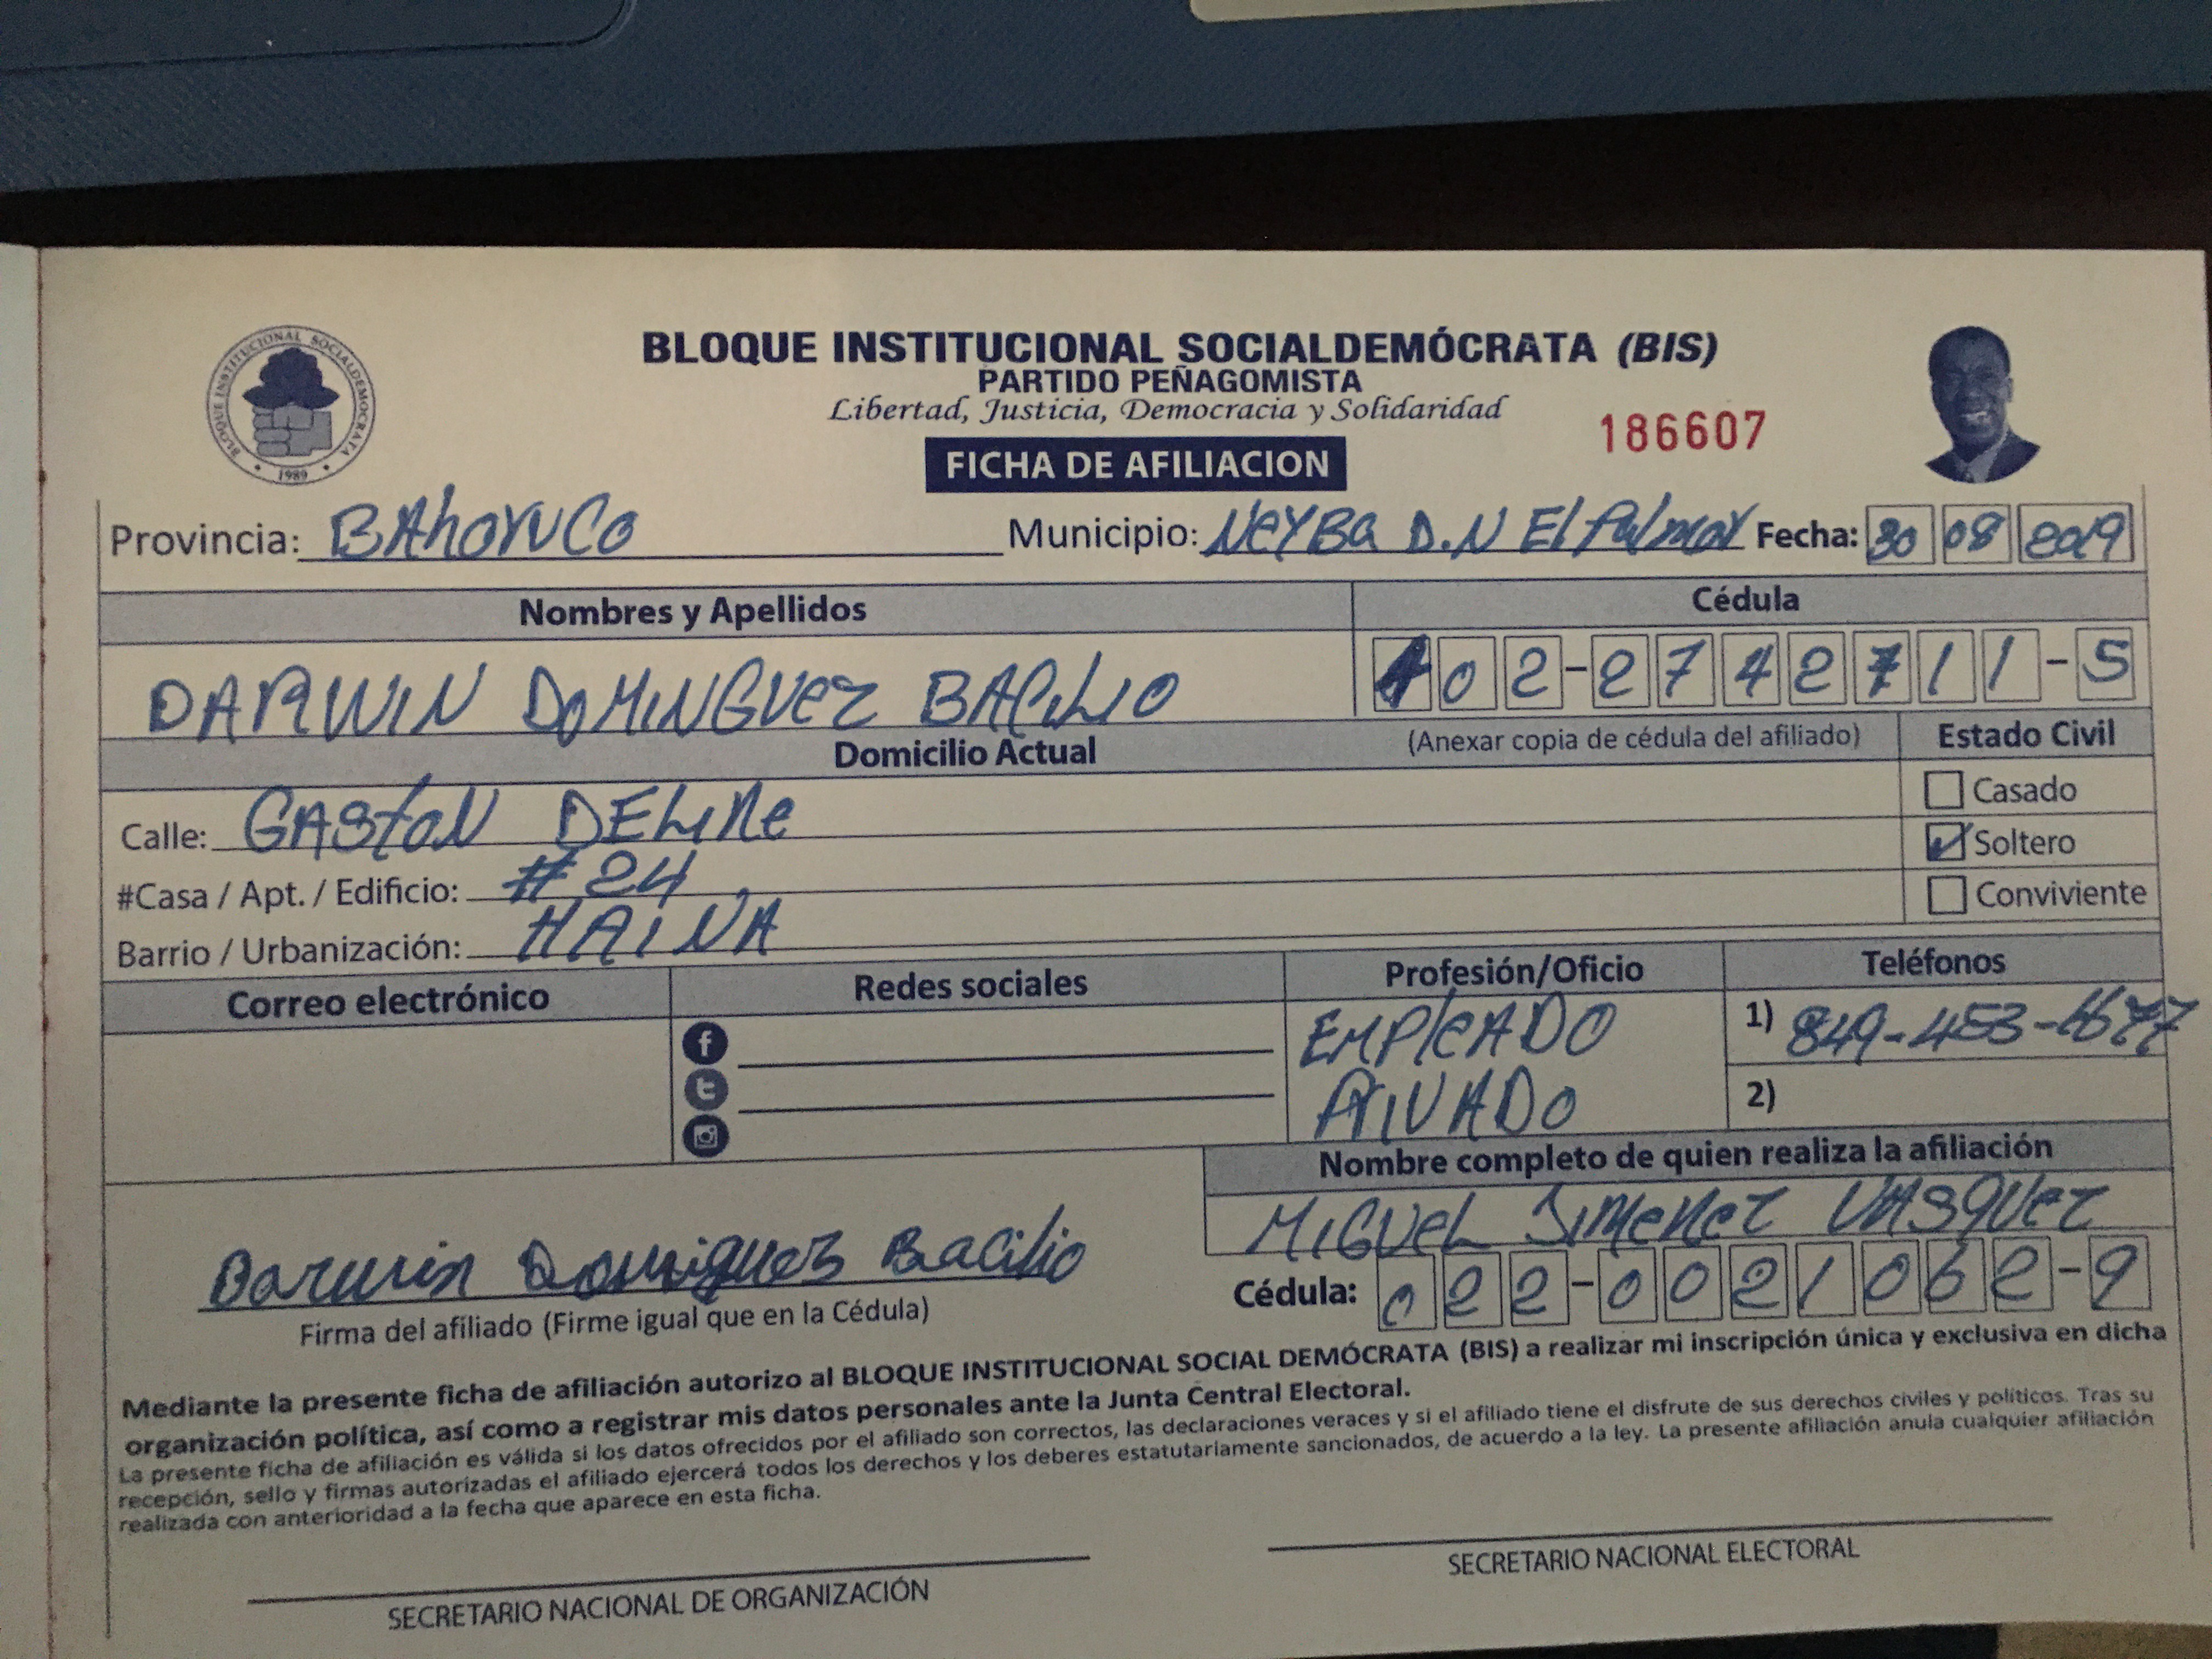 BLOQUE INSTITUCIONAL SOCIALDEMOCRATA
1989
BLOQUE INSTITUCIONAL SOCIALDEMÓCRATA (BIS)
PARTIDO PEÑAGOMISTA
Libertad, Justicia, Democracia y Solidaridad
186607
FICHA DE AFILIACION
Provincia: BAhoruco Municipio: NeYBa D.N El Palmar Fecha: 30 08 2019
Nombres y Apellidos Cédula
DARWIN DOMINGUEZ BACILIO 402-2742711-5
Domicilio Actual (Anexar copia de cédula del afiliado) Estado Civil
Calle: GAStoN DELINe Casado
#Casa / Apt. / Edificio: #24 Soltero
Barrio / Urbanización: HAINA Conviviente
Correo electrónico Redes sociales Profesión/Oficio Teléfonos
EMPleADO 1) 849-453-
PriVADO 2)
Nombre completo de quien realiza la afiliación
MIGUEL JIMeNez VASQUez
Darwin Dominguez Bacilio Cédula: 022-0021062-9
Firma del afiliado (Firme igual que en la Cédula)
Mediante la presente ficha de afiliación autorizo al BLOQUE INSTITUCIONAL SOCIAL DEMÓCRATA (BIS) a realizar mi inscripción única y exclusiva en dicha
organización política, así como a registrar mis datos personales ante la Junta Central Electoral.
La presente ficha de afiliación es válida si los datos ofrecidos por el afiliado son correctos, las declaraciones veraces y si el afiliado tiene el disfrute de sus derechos civiles y políticos. Tras su
recepción, sello y firmas autorizadas el afiliado ejercerá todos los derechos y los deberes estatutariamente sancionados, de acuerdo a la ley. La presente afiliación anula cualquier afiliación
realizada con anterioridad a la fecha que aparece en esta ficha.
SECRETARIO NACIONAL DE ORGANIZACIÓN SECRETARIO NACIONAL ELECTORAL